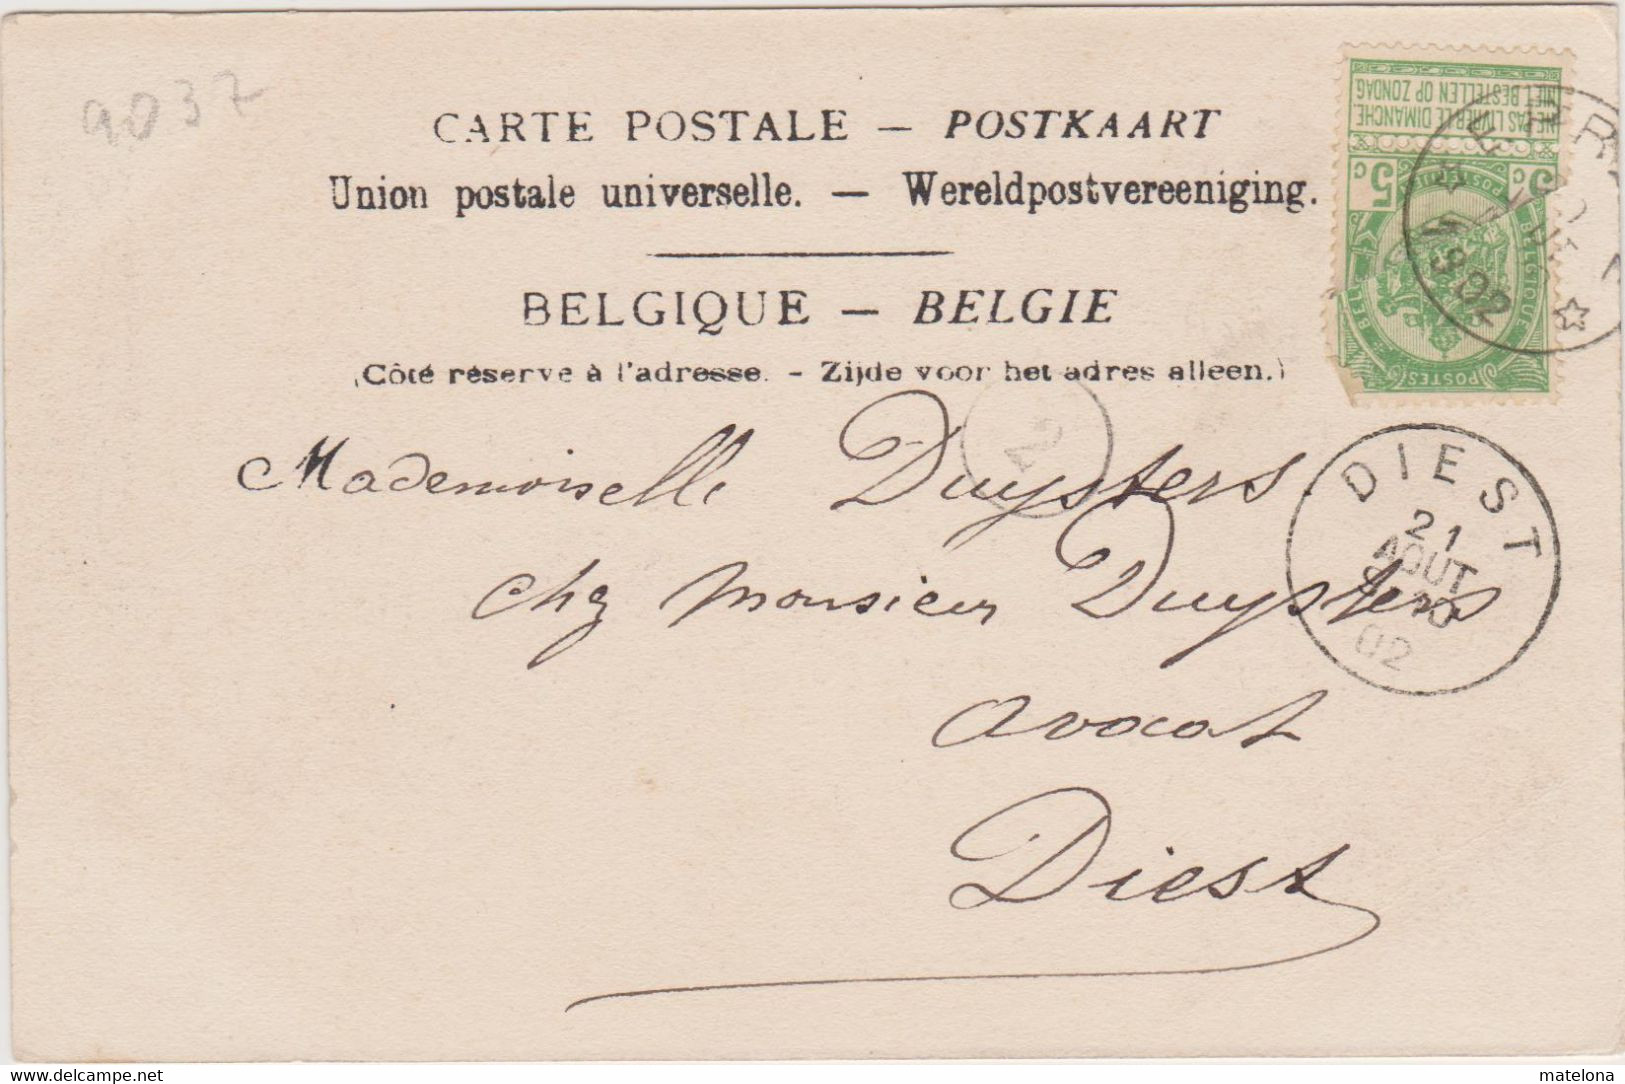 9037
CARTE POSTALE — POSTKAART
Union postale universelle. — Wereldpostvereeniging.
BELGIQUE — BELGIE
(Côté réservé à l'adresse. - Zijde voor het adres alleen.)
NE PAS LIVRER LE DIMANCHE
NIET BESTELLEN OP ZONDAG
5c 5c
POSTES BELGIQUE
1902
2
DIEST
21
AOUT
10
02
Mademoiselle Duysters
chez monsieur Duysters
avocat
Diest
www.delcampe.net
matelona